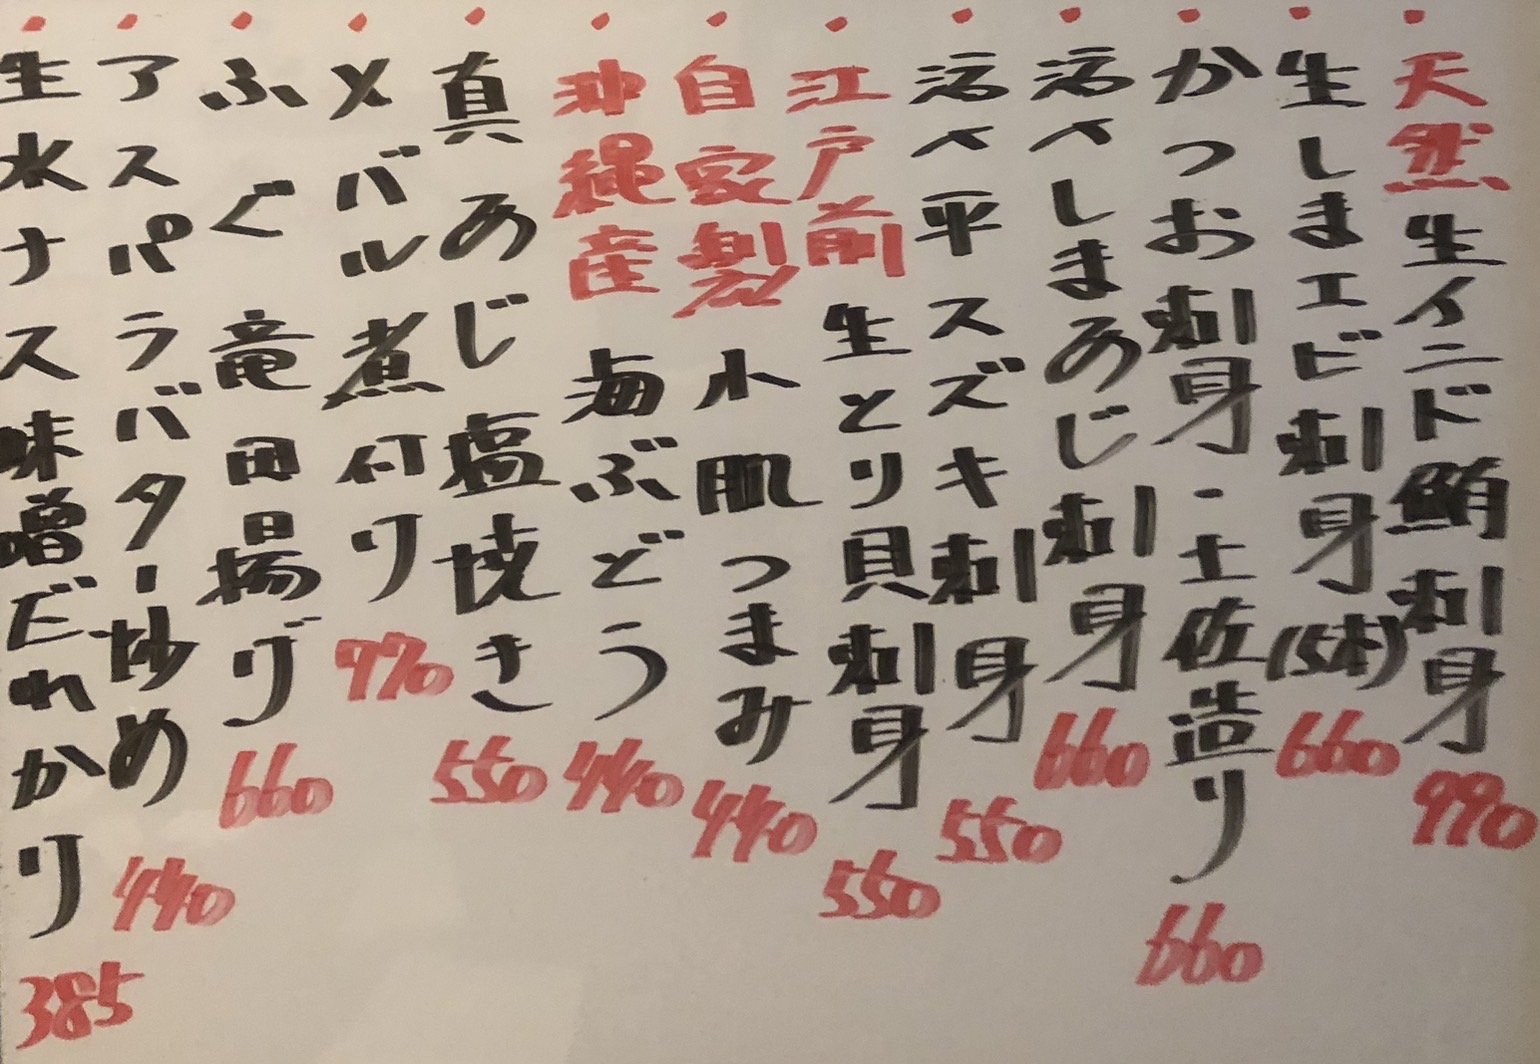 ・天然生インド鮪刺身 990
・生しまエビ刺身(5本) 660
・かつお刺身・土佐造り 660
・活〆しまあじ刺身 660
・活〆平スズキ刺身 550
・江戸前生とり貝刺身 550
・自家製小肌つまみ 440
・沖縄産海ぶどう 440
・真あじ塩焼き 550
・メバル煮付り 970
・ふぐ竜田揚げ 660
・アスパラバター炒め 440
・生水ナス味噌だれかり 385